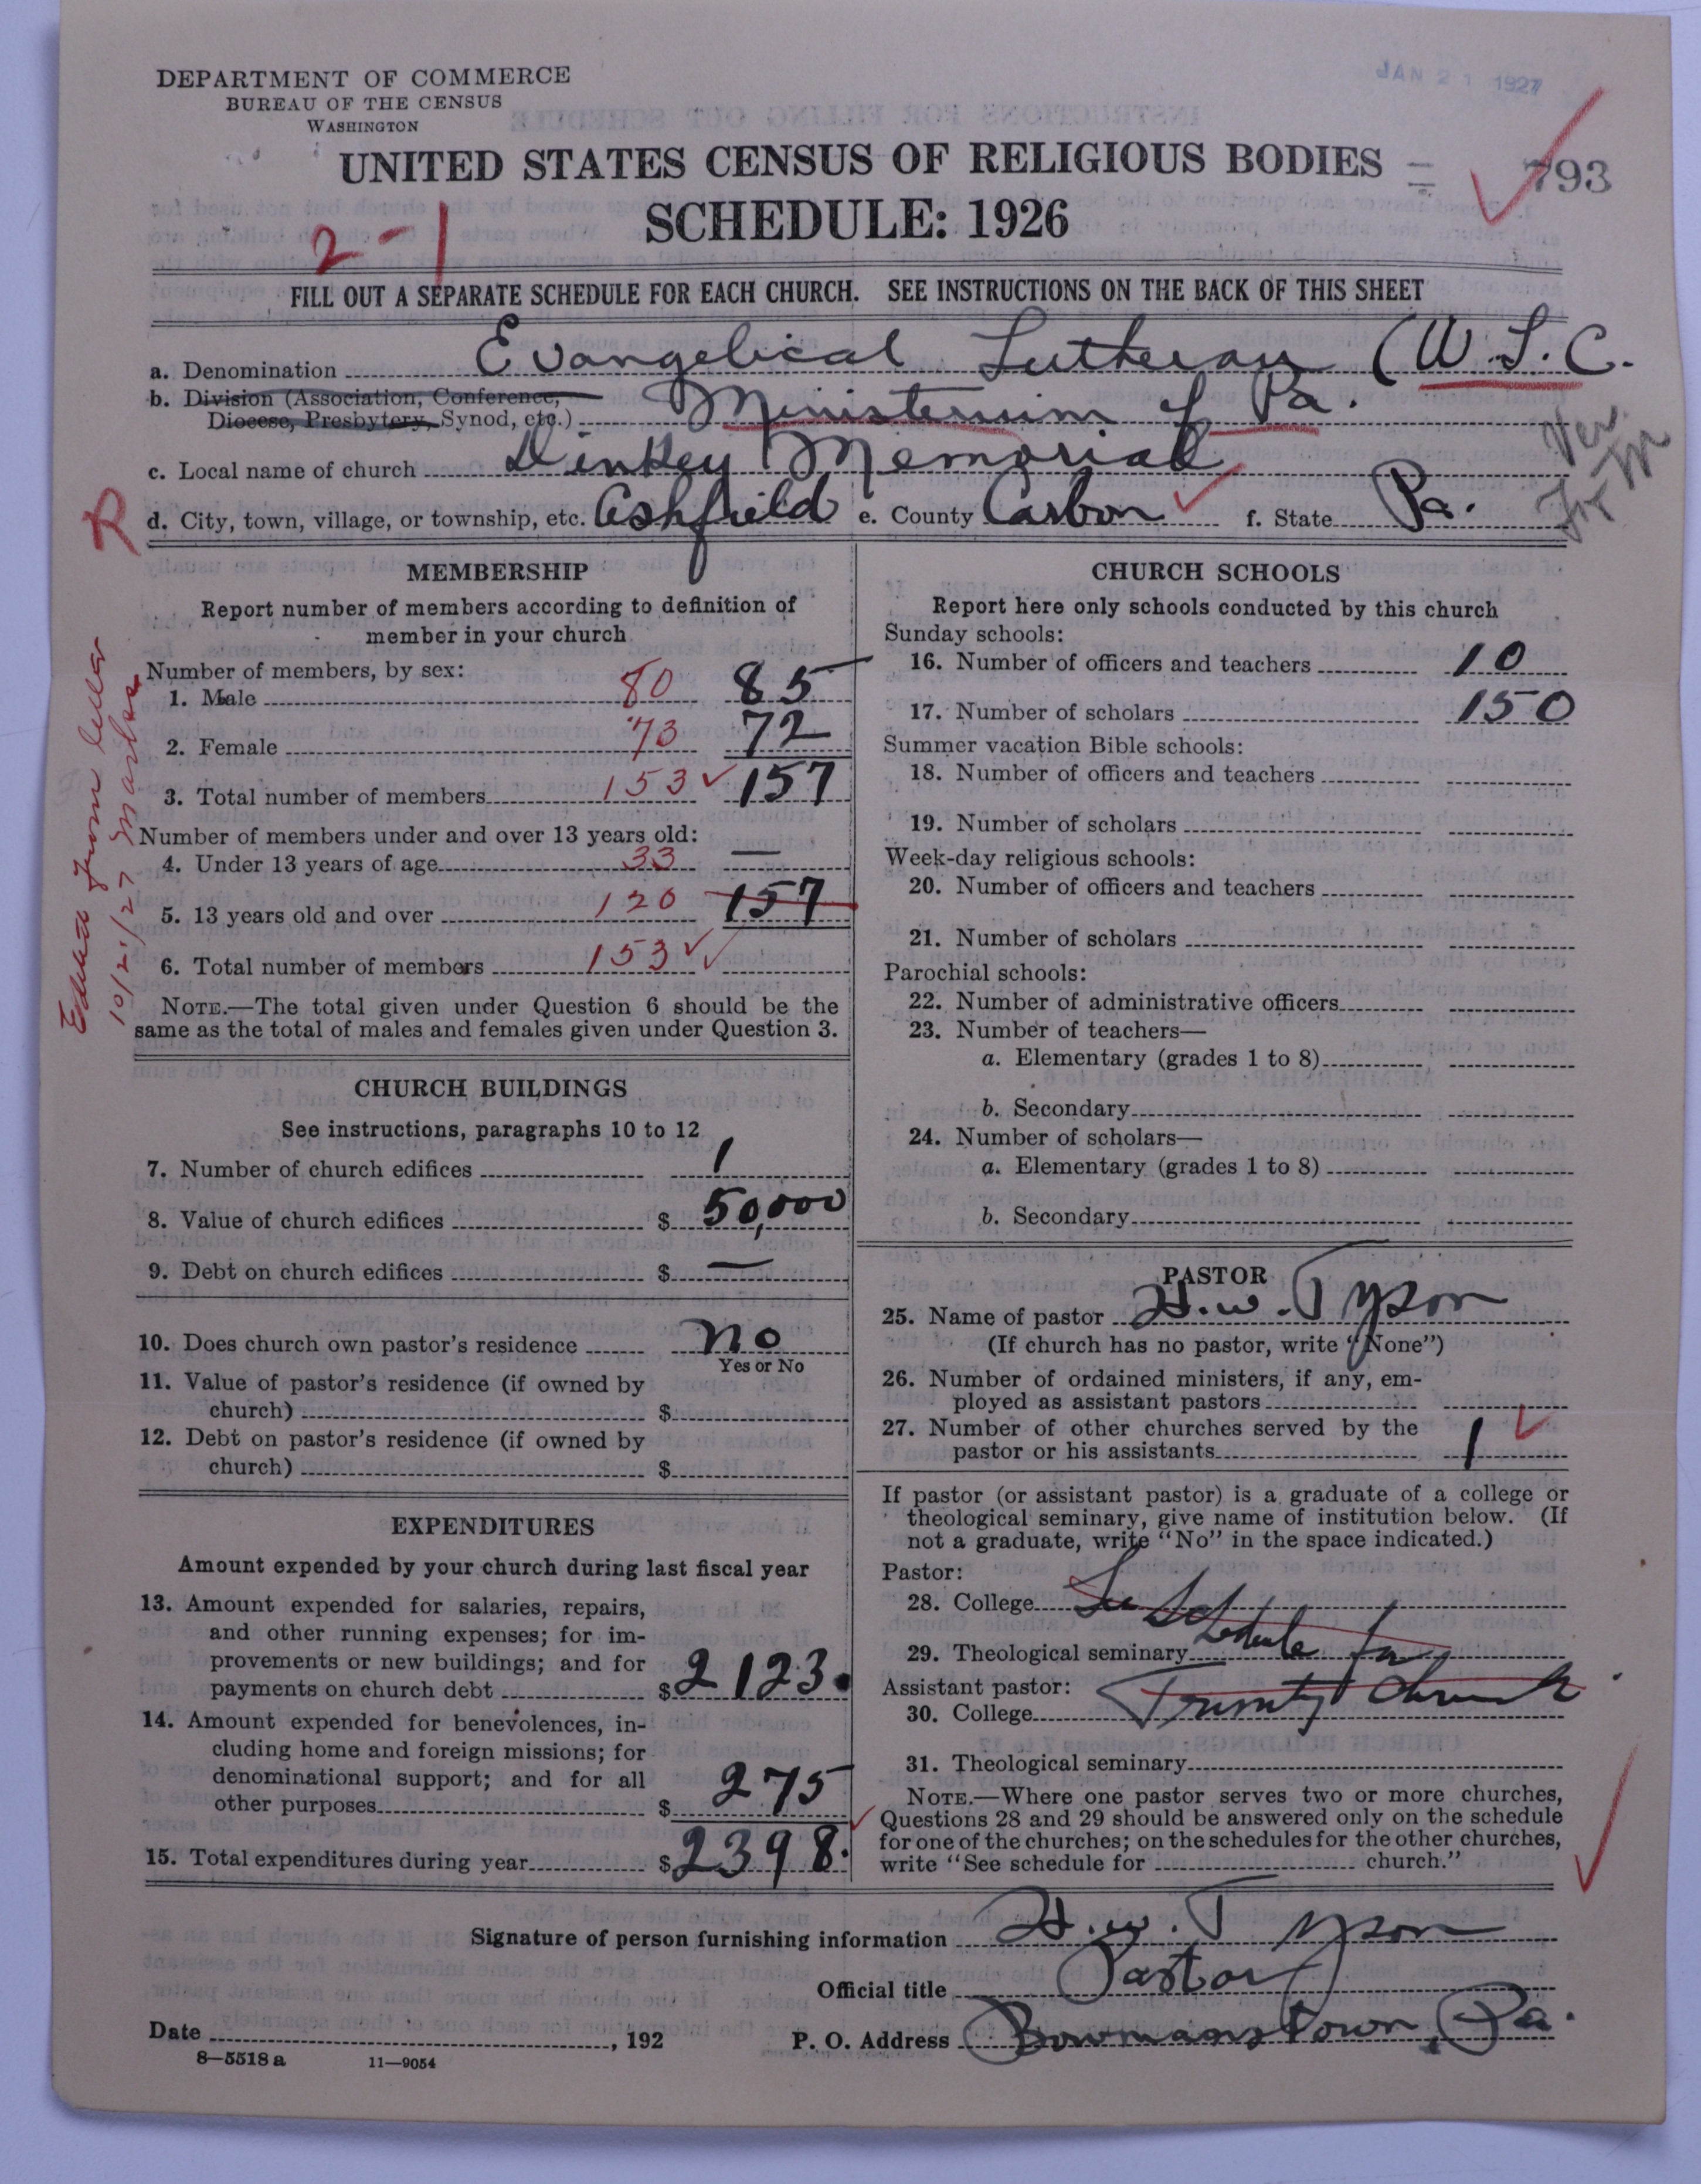 DEPARTMENT OF COMMERCE
BUREAU OF THE CENSUS
WASHINGTON
JAN 21 1927
UNITED STATES CENSUS OF RELIGIOUS BODIES
793
SCHEDULE: 1926
2-1
FILL OUT A SEPARATE SCHEDULE FOR EACH CHURCH. SEE INSTRUCTIONS ON THE BACK OF THIS SHEET
a. Denomination Evangelical Lutheran (U.L.C.
b. Division (Association, Conference,
Diocese, Presbytery, Synod, etc.) Ministerium of Pa.
c. Local name of church Dinkey Memorial
R
d. City, town, village, or township, etc. Ashfield e. County Carbon f. State Pa.
MEMBERSHIP
Report number of members according to definition of
member in your church
Number of members, by sex:
1. Male 80 85
2. Female 73 72
3. Total number of members 153 157
Number of members under and over 13 years old:
4. Under 13 years of age 33 —
5. 13 years old and over 120 157
6. Total number of members 153
NOTE.—The total given under Question 6 should be the
same as the total of males and females given under Question 3.
Edited from letter
10/21/27
CHURCH BUILDINGS
See instructions, paragraphs 10 to 12
7. Number of church edifices 1
8. Value of church edifices $ 50,000
9. Debt on church edifices $ —
10. Does church own pastor's residence No
Yes or No
11. Value of pastor's residence (if owned by
church) $
12. Debt on pastor's residence (if owned by
church) $
EXPENDITURES
Amount expended by your church during last fiscal year
13. Amount expended for salaries, repairs,
and other running expenses; for im-
provements or new buildings; and for
payments on church debt $ 2123.
14. Amount expended for benevolences, in-
cluding home and foreign missions; for
denominational support; and for all
other purposes $ 275
15. Total expenditures during year $ 2398.
CHURCH SCHOOLS
Report here only schools conducted by this church
Sunday schools:
16. Number of officers and teachers 10
17. Number of scholars 150
Summer vacation Bible schools:
18. Number of officers and teachers
19. Number of scholars
Week-day religious schools:
20. Number of officers and teachers
21. Number of scholars
Parochial schools:
22. Number of administrative officers
23. Number of teachers—
a. Elementary (grades 1 to 8)
b. Secondary
24. Number of scholars—
a. Elementary (grades 1 to 8)
b. Secondary
PASTOR
25. Name of pastor H. W. Tyson
(If church has no pastor, write "None")
26. Number of ordained ministers, if any, em-
ployed as assistant pastors
27. Number of other churches served by the
pastor or his assistants 1
If pastor (or assistant pastor) is a graduate of a college or
theological seminary, give name of institution below. (If
not a graduate, write "No" in the space indicated.)
Pastor:
28. College See
29. Theological seminary Schedule for
Assistant pastor:
30. College Trinity Church
31. Theological seminary
NOTE.—Where one pastor serves two or more churches,
Questions 28 and 29 should be answered only on the schedule
for one of the churches; on the schedules for the other churches,
write "See schedule for church."
Signature of person furnishing information H. W. Tyson
Official title Pastor
Date , 192 P. O. Address Bowmanstown, Pa.
8—5518 a 11—9054